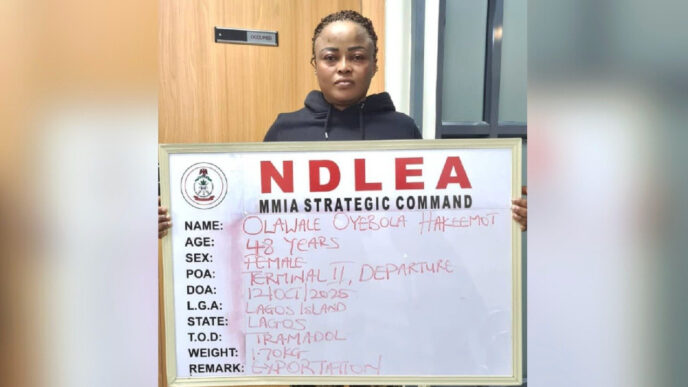 OCCUPIED
NDLEA
MMIA STRATEGIC COMMAND
NAME: OLAWALE OYEBOLA HAKEEMOT
AGE: 48 YEARS
SEX: FEMALE
POA: TERMINAL II, DEPARTURE
DOA: 12/OCT/2025
L.G.A: LAGOS ISLAND
STATE: LAGOS
T.O.D: TRAMADOL
WEIGHT: 1.70KG
REMARK: EXPORTATION